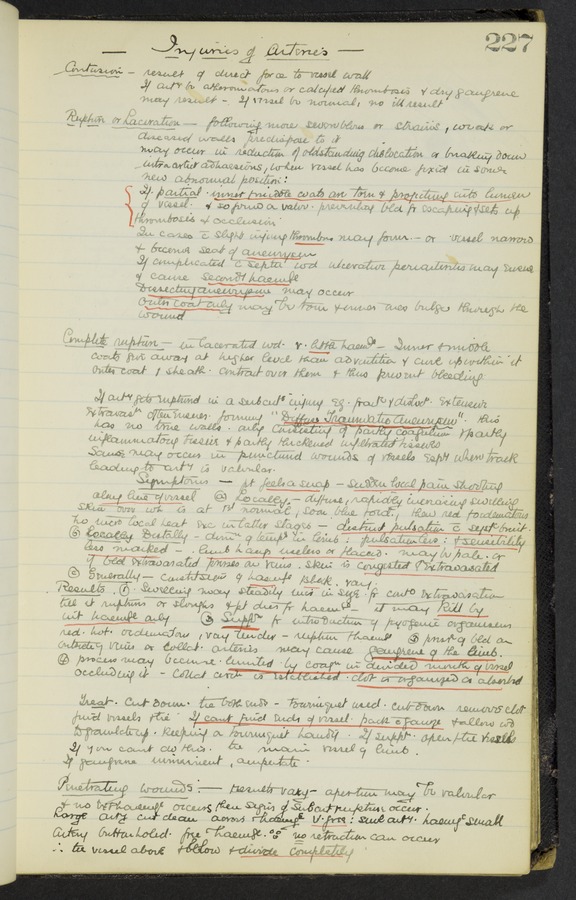 227
— Injuries of Arteries —
Contusion — result of direct force to vessel wall
If arty be atheromatous or calcified thrombosis & dry gangrene
may result - If vessel be normal, no ill result
Rupture or Laceration — following more severe blows or strains, weak or
diseased walls predispose to it
may occur in reduction of oldstanding dislocation or breaking down
intra artic adhaesions, when vessel has become fixed in some
new abnormal position:
If partial · inner & middle coats are torn & projecting into lumen
of vessel · & so form a valve · preventing bld fr escaping & sets up
thrombosis & occlusion·
In cases c slight injury thrombus may form — or vessel narrow
& become seat of aneurysm
If complicated c septic wd ulcerative periarteritis may
& cause secondy haemge
Dissecting aneurysm may occur
Outer coat only may be torn & inner ones bulge through the
wound
Complete rupture — in lacerated wd · little haemge — Inner & middle
coats give away at higher level than adventitia & curl up within it
Outer coat & sheath · contract over them & thus prevent bleeding.
If arty gets ruptured in a subcuts injury eg. fractr & disloc. Extensive
Extravasn often ensues forming "Diffuse Traumatic Aneurysm". this
has no true walls. only consisting of partly coagulum & partly
inflammatory tissues & partly thickened infiltrated tissues
Same may occur in punctured wounds of vessels Esply when track
leading to arty is valvular.
Symptoms — pt feels a snap - sudden local pain shooting
along line of vessel ⓐ Locally - diffuse, rapidly increasing swelling
skin over wh is at 1st normal, soon blue
no incr local heat in latter stages — distinct pulsation c syst bruit.
ⓑ Locally Distally - dimn of tempr in limb : pulsationless : & sensibility
less marked — limb hangs useless or flaccid. may be pale. or
if bld extravasated presses on veins. skin is congested & extravasated
ⓒ Generally — constit signs of haemge & shock. vary.
Results. ① Swelling may steadily incr in size fr contd extravasation
till it ruptures or sloughs & pt dies fr haemge — it may kill by
int haemge only ② Suppn fr introduction of pyogenic organisms
red. hot. oedematous, very tender - rupture & haem ③ presr of bld on
veins or collat. arteries may cause gangrene of the limb.
④ process may become limited by coagn in divided mouth of vessel
occluding it - collat circn is established · clot is organised or absorbed
Treat. Cut down. tie both ends - tourniquet used. cut down remove clot
find vessels & tie If cant find ends of vessel. pack c gauze & allow wd
to granulate up. keeping a tourniquet handy. If suppt. open & tie vessels
If you cant do this. tie main vessel of limb.
If gangrene imminent, amputate.
Penetrating wounds: — results vary - aperture may be valvular
& no extl haemge occurs then signs of subcut rupture occur.
Large arty cut clean across - haemge v. free: small arty. haemge small
Artery buttonholed. free haemge. ∵ no retraction can occur
∴ tie vessel above & below & divide completely